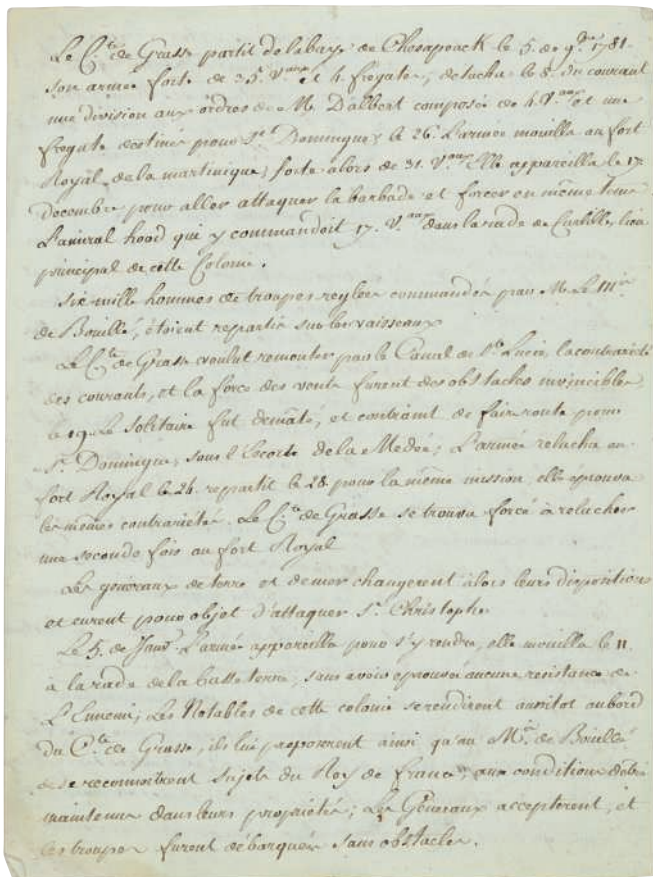 Le C.te de Grasse partit de la baye de Chesapeack le 5. de 9.bre 1781.
son armée forte de 35. V.aux et 4. frégates, detacha le 8. du courant
une division aux ordres de M. D'albert composée de 4. V.aux et une
fregate destinée pour S.t Domingue; le 26. L'armée mouilla au fort
Royal de la martinique, forte alors de 31. V.aux Elle appareilla le 17
Decembre pour aller attaquer la barbade et forcer en même tems
L'amiral hood qui y commandoit 17. V.aux dans la rade de Carlille, lieu
principal de cette Colonie.
Six mille hommes de troupes reglées commandés par M. Le M.is
de Bouillé, étoient repartis sur les vaisseaux
Le C.te de Grasse voulut remonter par le Canal de S.te Lucie, la contrarieté
des courants, et la force des vents furent des obstacles invincibles,
le 19. Le Solitaire fut demâté, et contraint de faire route pour
S.t Domingue, sous l'Escorte de la Medée; L'armée relacha au
fort Royal le 24. repartit le 28. pour la même mission, elle éprouva
les mêmes contrarietés. Le C.te de Grasse se trouva forcé à relacher
une seconde fois au fort Royal
Les généraux de terre et de mer changerent alors leurs dispositions
et eurent pour objet d'attaquer S.t Christophe
Le 5. de Janv.r L'armée appareilla pour s'y rendre, elle mouilla le 11
à la rade de la basse terre, sans avoir éprouvé aucune resistance de
L'Ennemi; Les Notables de cette colonie se rendirent aussitot au bord
du C.te de Grasse, ils lui proposerent ainsi qu'au M.is de Bouillé
de se reconnoitre Sujets du Roy de france, aux conditions d'etre
maintenus dans leurs proprietés; Les Géneraux accepterent, et
les troupes furent débarquées sans obstacles.